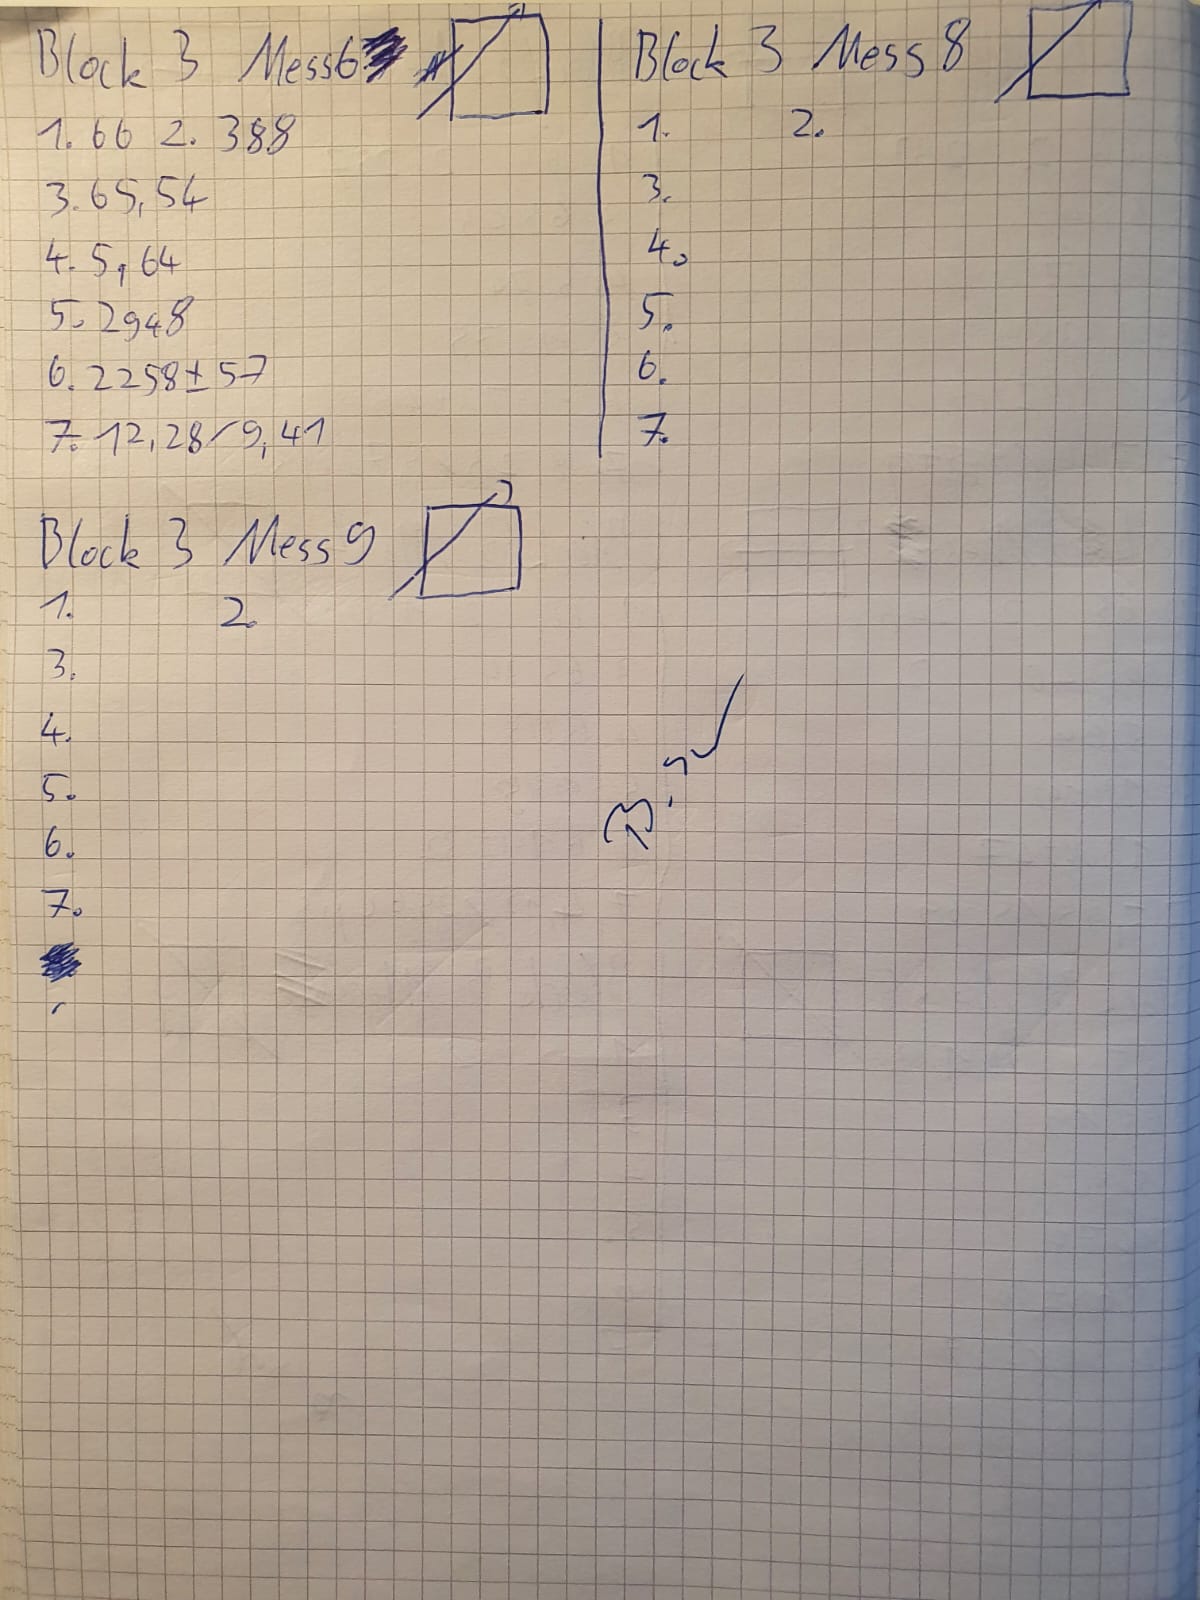 Block 3 Mess6
1. 66 2. 388
3. 65,54
4. 5,64
5. 2948
6. 2258±57
7. 12,28/9,41
Block 3 Mess 8
1. 2.
3.
4.
5.
6.
7.
Block 3 Mess 9
1. 2.
3.
4.
5.
6.
7.